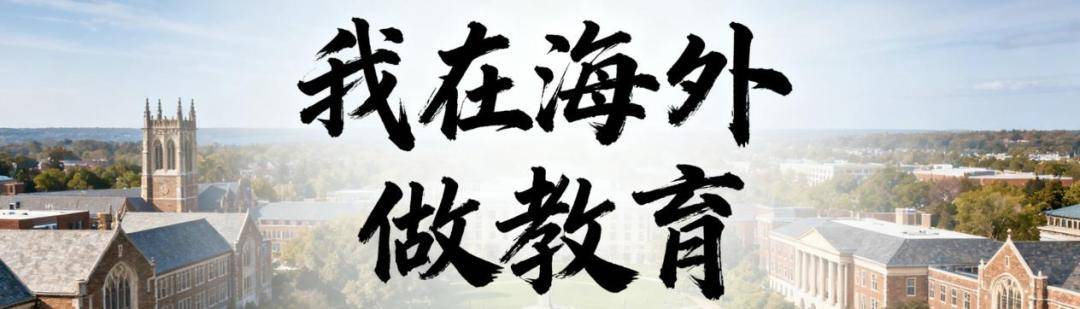 我在海外
做教育